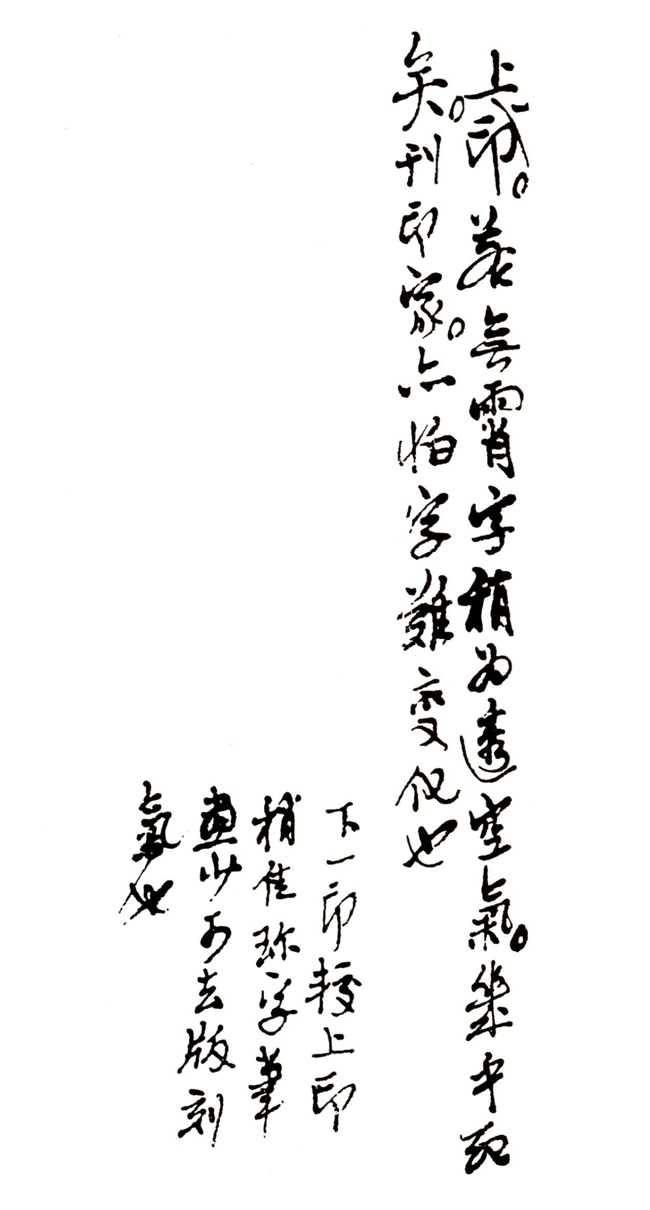 上印。若無霄字稍為透空氣。幾乎死
矣。刊印家。亦怕字難變化也
下一印較上印
稍佳珎字筆
畫少可去版刻
氣也